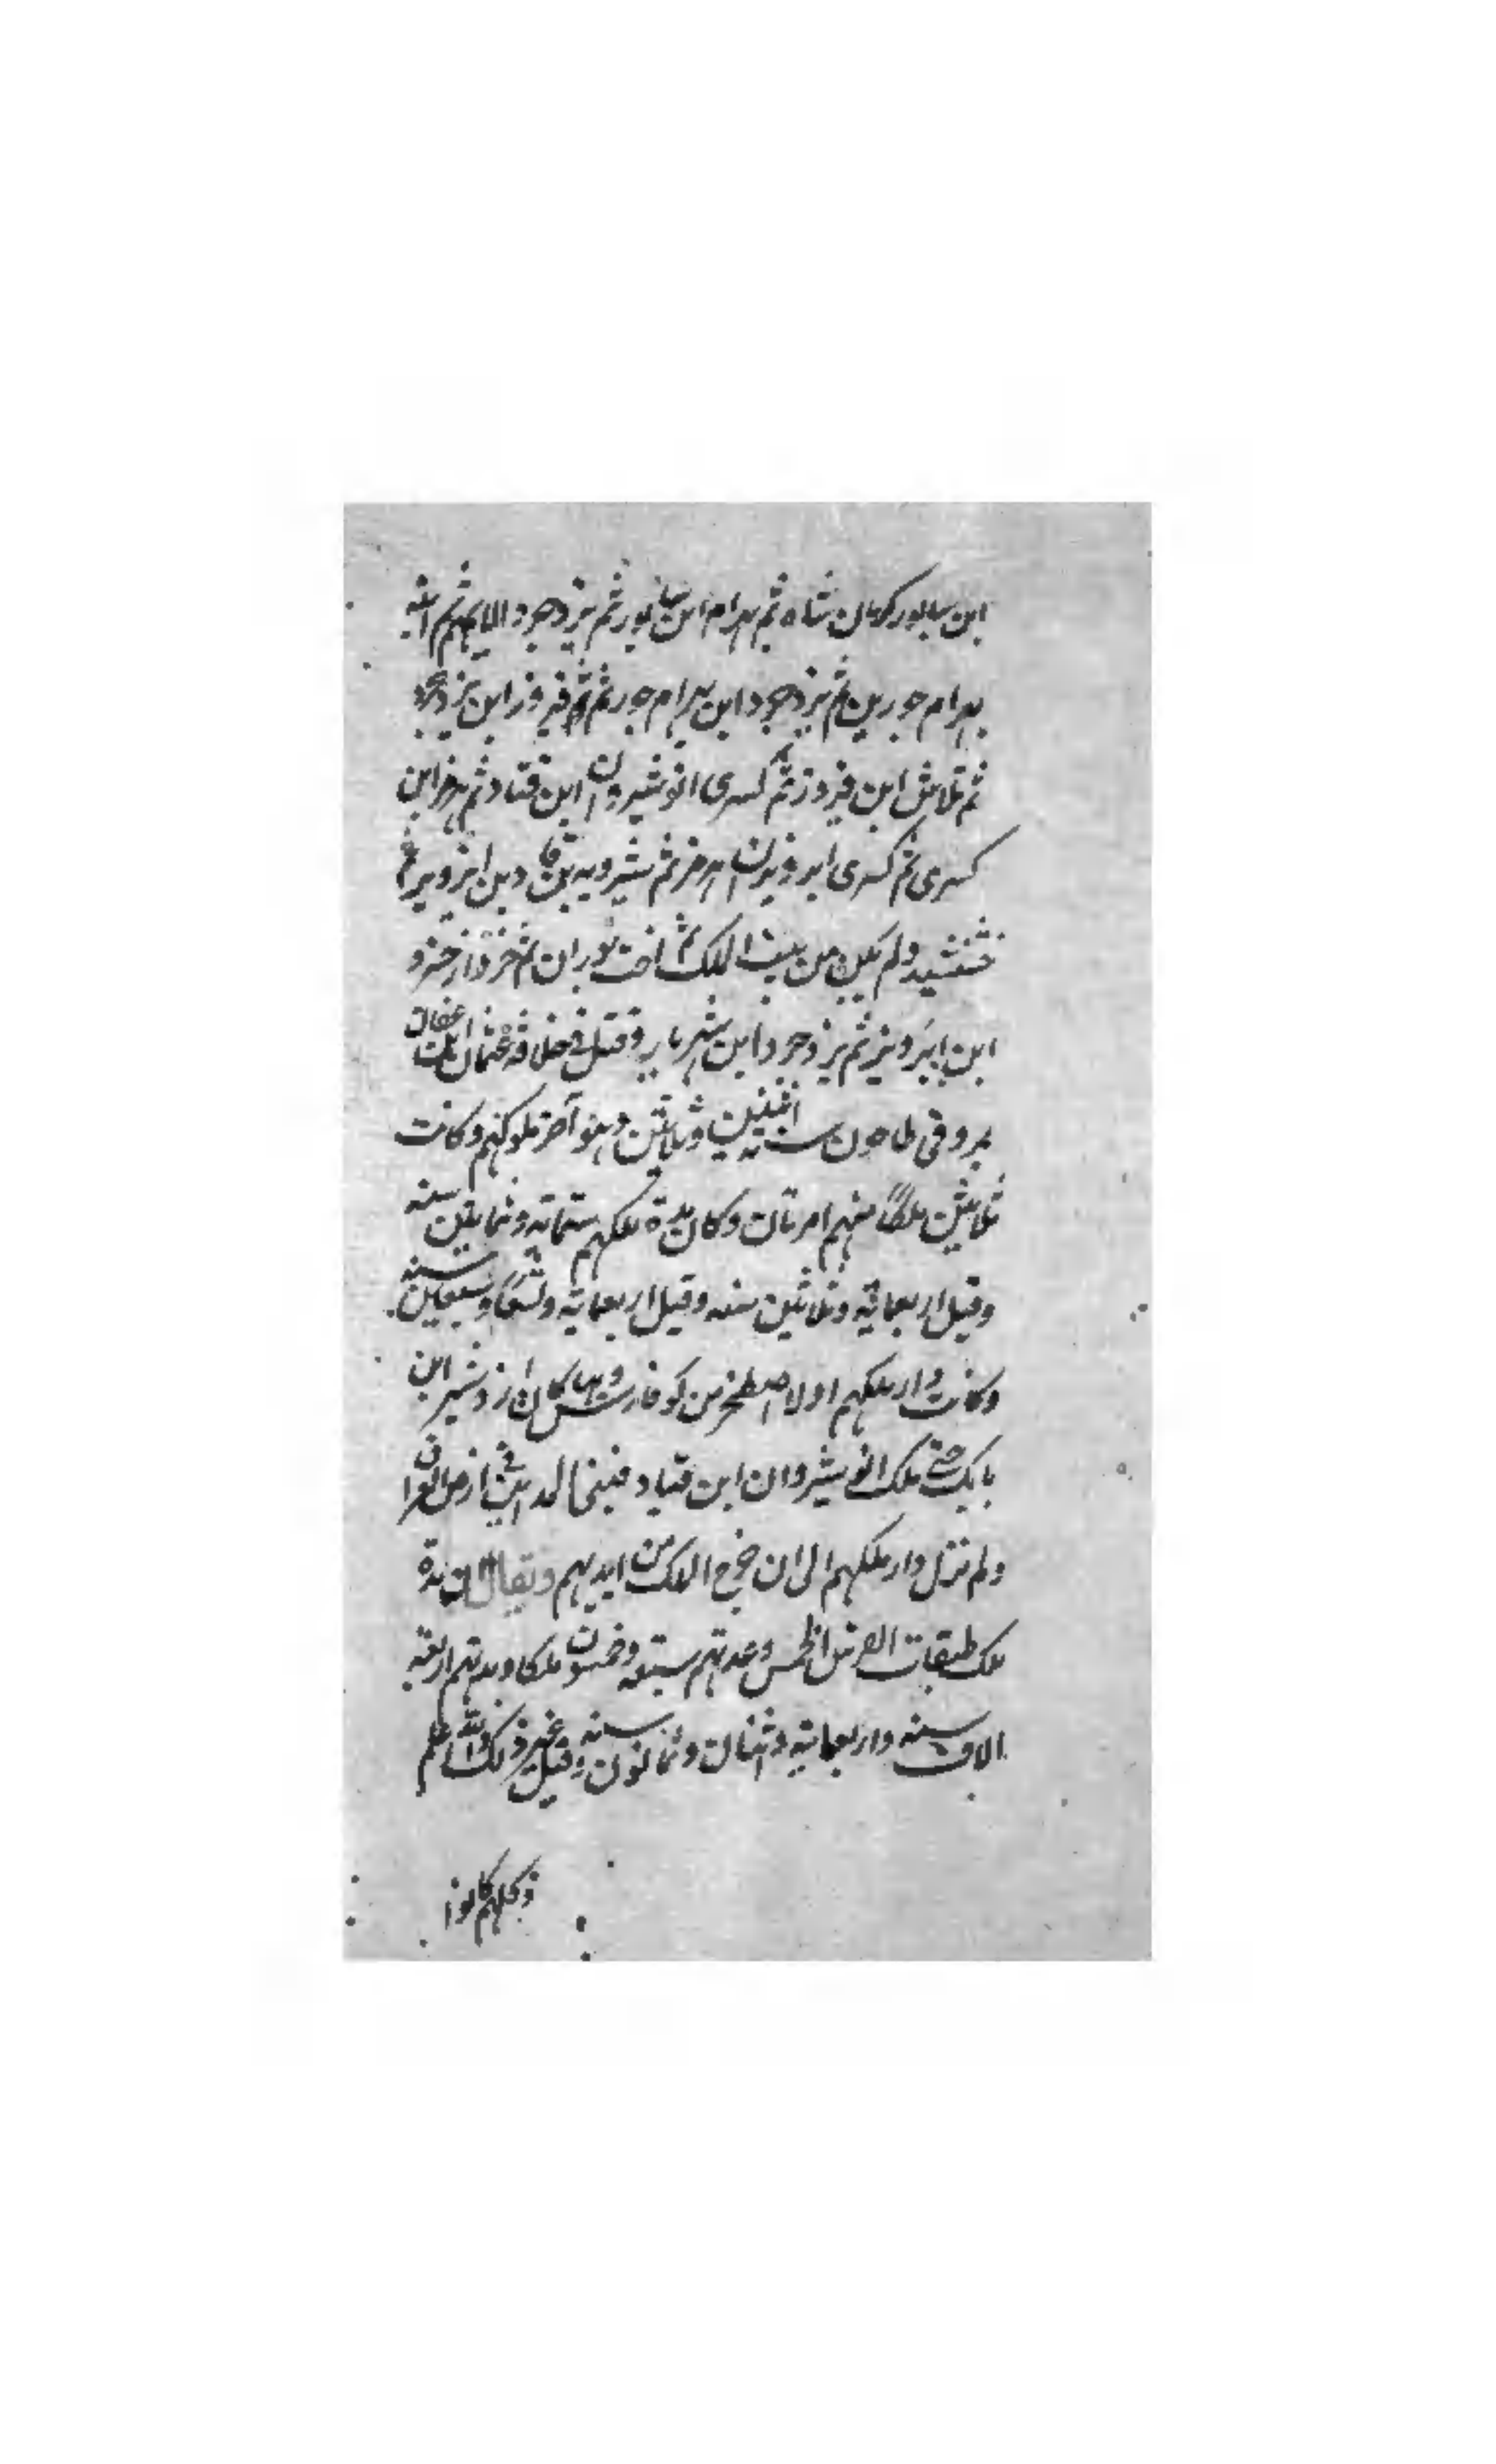 ابن سابور كرمان شاه ثم بهرام ابن سابور ثم يزدجرد الاثيم ثم ابنه
بهرام جورين ثم يزدجرد ابن بهرام جور ثم فيروز ابن يزدجرد
ثم بلاش ابن فيروز ثم كسرى انوشيروان ابن قباد ثم هرمز ابن
كسرى ثم كسرى ابرويز ابن هرمز ثم شيرويه بن ابرويز ثم
خشنشيده ولم يكن من بيت الملك ثم اخت توران ثم خرداذ خسرو
ابن ابرويز ثم يزدجرد ابن شهريار وقتل في خلافة عثمان بن عفان
بمرو في طاحون سنة اثنين وثلاثين وهو آخر ملوكهم وكانت
ثلاثين ملكًا منهم امرتان وكان مدة ملكهم ستماية وثمانين سنه
وقيل اربعماية وثلاثين سنه وقيل اربعماية وتسعًا وسبعين سنه
وكانت دار ملكهم اولا اصطخر من كور فارس وبها كان ازدشير ابن
بابك حتى ملك انوشيروان ابن قباد فبنى المداين في ارض العراق
ولم تزل دار ملكهم الى ان خرج الملك من ايديهم ويقال ان مدة
ملك طبقات الفرس الخمس وعدتهم ستة وخمسون ملكا ومدتهم اربعة
الاف سنه واربعماية واثنان وثمانون سنه وقيل غير ذلك والله اعلم
وكلهم كانوا